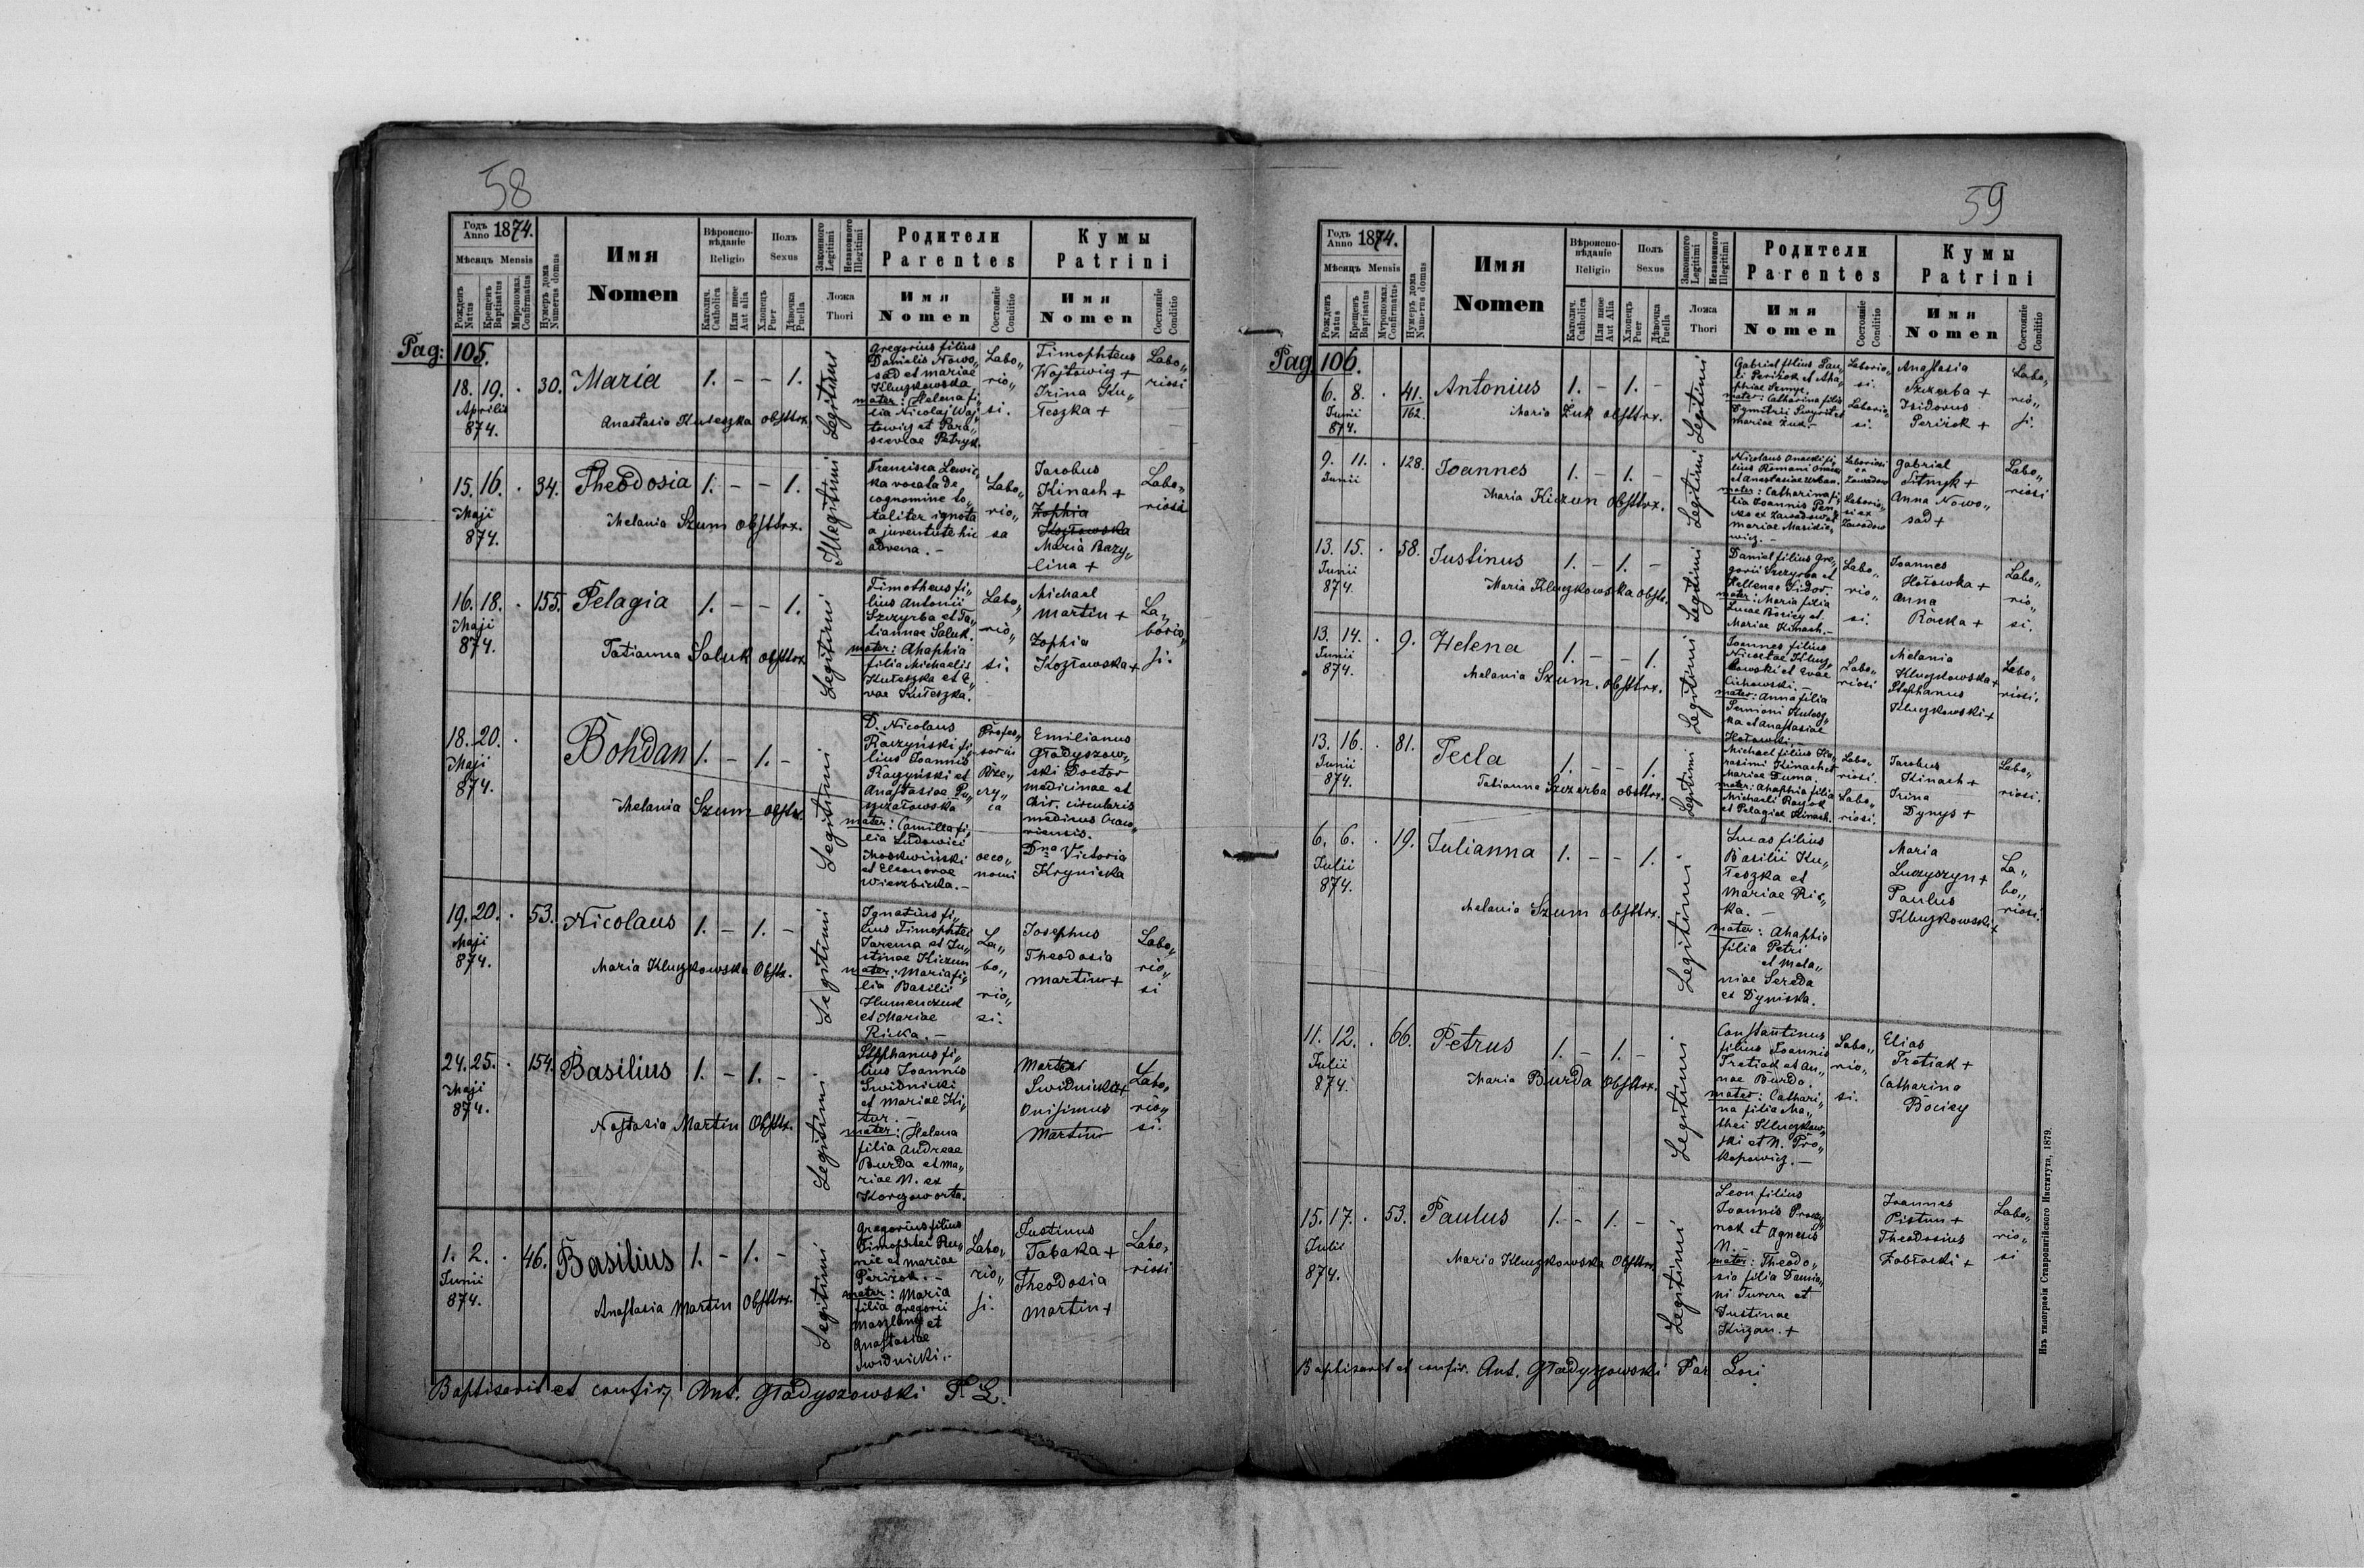 58
Годъ Anno 1874.
Мѣсяцъ Mensis
Рожденъ Natus
Крещенъ Baptisatus
Миропомаз. Confirmatus
Нумеръ дома Numerus domus
Имя
Nomen
Вѣроиспо-
вѣданіе
Religio
Католич. Catholica
Или иное Aut Alia
Полъ
Sexus
Хлопецъ Puer
Дѣвочка Puella
Законного Legitimi
Незаконного Illegitimi
Ложа
Thori
Родители
Parentes
Имя
Nomen
Состояніе Conditio
Кумы
Patrini
Имя
Nomen
Состояніе Conditio
Pag: 105.
18. 19. . 30. Maria 1. - - 1.
Aprilis
874.
Anastasia Kułeszka obsttrx.
Legitimi
Gregorius filius
Danielis Nowo„
sad et Mariae
Kluczkowska
mater: Helena fi„
lia Nicolai Woj„
towicz et Para„
scevae Petryk.
Labo„
rio„
si.
Timophteus
Wojtowicz +
Irina Ku„
łeszka +
Labo„
riosi
15. 16. . 34. Theodosia 1. - - 1.
Maji
874.
Melania Szum obsttrx.
Illegitimi
Francisca Lewic„
ka vocata de
cognomine to„
taliter ignota
a juventute hic
advena. -
Labo„
rio„
sa
Jacobus
Kinach +
Zophia
Kozłowska
Maria Bazy„
lina +
Labo„
riosi
16. 18. . 155. Pelagia 1. - - 1.
Maji
874.
Tatianna Saluk obsttrx
Legitimi
Timotheus fi„
lius Antonii
Szczyrba et Ta„
tiannae Saluk.
mater: Ahaphia
filia Michaelis
Kułeszka et E„
vae Kułeszka.
Labo„
rio„
si.
Michael
Martin +
Zophia
Kozłowska +
La„
borio„
si.
18. 20. . Bohdan 1. - 1. -
Maji
874.
Melania Szum obsttr.
Legitimi
D. Nicolaus
Raczyński fi„
lius Joannis
Raczyński et
Anastasiae
mater: Camilla fi„
lia Ludowici
Moskwiński
et Eleonorae
Wierzbicka. -
Profes„
soris
oeco„
nomi
Emilianus
Gładyszow„
ski Doctor
medicinae et
Chir. circularis
medicus
Dna Victoria
Krynicka
19. 20. . 53. Nicolaus 1. - 1. -
Maji
874.
Maria Kluczkowska Obsttr.
Legitimi
Ignatius fi„
lius Timophtei
Jarema et Ju„
stinae Kiczun
mater: Maria fi„
lia Basilii
Humenczuk
et Mariae
Ricka. -
La„
bo„
rio„
si.
Josephus
Theodosia
Martin +
Labo„
rio„
si
24. 25. . 154. Basilius 1. - 1. -
Maji
874.
Nastasia Martin Obsttr.
Legitimi
Stephanus fi„
lius Joannis
Swidnicki
et Mariae Ki„
tar. -
mater: Helena
filia Andreae
Burda et Ma„
riae N. ex
Korczow orta.
Swidnicka +
Onisimus
Martin
Labo„
rio„
si.
1. 2. . 46. Basilius 1. - 1. -
Junii
874.
Anastasia Martin Obsttrx.
Legitimi
Gregorius filius
Timophtei Ru„
nic et Mariae
Perizok. -
mater: Maria
filia Gregorii
Maszlanij et
Anastasiae
Swidnicki. -
Labo„
rio„
si.
Justinus
Tabaka +
Theodosia
Martin +
Labo„
riosi
Baptisavit et confir. Ant. Gładyszowski P. L.
59
Годъ Anno 1874.
Мѣсяцъ Mensis
Рожденъ Natus
Крещенъ Baptistatus
Муропомаз. Confirmatus
Нумеръ дома Numerus domus
Имя
Nomen
Вѣроиспо-
вѣданіе
Religio
Католич. Catholica
Или иное Aut Alia
Полъ
Sexus
Хлопецъ Puer
Дѣвочка Puella
Законного Legitimi
Незаконного Illegitimi
Ложа
Thori
Родители
Parentes
Имя
Nomen
Состояніе Conditio
Кумы
Patrini
Имя
Nomen
Состояніе Conditio
Pag 106.
6. 8. . 41. Antonius 1. - 1. -
Junii 162.
874.
Maria Żuk obsttrx.
Legitimi
Gabriel filius Pau„
li Perizok et Aha„
phiae
mater: Catharina filia
Dymitrii et
Mariae Żuk. -
Laborio„
si.
Laborio„
si.
Anastasia
Szczerba +
Isidorus
Perizok +
Labo„
rio„
si.
9. 11. . 128. Joannes 1. - 1. -
Junii
Maria Kiczun Obsttrx.
Legitimi
Nicolaus fi„
lius Romani
et Anastasiae Urban.
mater: Catharina fi„
lia Joannis
et
Mariae
wicz. -
Laboriosi
ex
Zawadow
Laborio„
si ex
Zawadow
Gabriel
Sitnyk +
Anna Nowo„
sad +
Labo„
riosi
13. 15. . 58. Justinus 1. - 1. -
Junii
874.
Maria Kluczkowska obsttr.
Legitimi
Daniel filius Gre„
gorii Szczyrba et
Hellenae Sidor.
mater: Maria filia
Lucae Bociey et
Mariae Kinach. -
Labo„
rio„
si.
Joannes
Hołowka +
Anna
Ricka +
Labo„
rio„
si.
13. 14. . 9. Helena 1. - - 1.
Junii
874.
Melania Szum. obsttrx.
Legitimi
Joannes filius
Nicetae Klucz„
kowski et Evae
Cichowski. -
mater: Anna filia
Simioni Kułesz„
ka et Anastasiae
Hołowski. -
Labo„
riosi
Melania
Kluczkowska +
Stephanus
Kluczkowski +
Labo„
riosi.
13. 16. . 81. Tecla 1. - - 1.
Junii
874.
Tatianna Szczerba obsttrx.
Legitimi
Michael filius Ha„
rasimi Kinach et
Mariae Duma.
mater: Ahaphia filia
Michaeli
et Pelagiae Kinach.
Labo„
riosi.
Labo„
riosi.
Jacobus
Kinach +
Irina
Dynys +
Labo„
riosi.
6. 6. . 19. Julianna 1. - - 1.
Julii
874.
Melania Szum obsttrx.
Legitimi
Lucas filius
Basilii Ku„
łeszka et
Mariae Ric„
ka. -
mater: Ahaphia
filia Petri
et Mela„
niae Sereda
ex Dyniska.
Maria
Luczyszyn +
Paulus
Kluczkowski +
La„
bo„
riosi.
11. 12. . 66. Petrus 1. - 1. -
Julii
874.
Maria Burda Obsttrx.
Legitimi
Constantinus
filius Joannis
Tretiak et An„
nae Burda.
mater: Cathari„
na filia Ma„
thei Kluczkow„
ski et N. Pro„
kopowicz. -
Labo„
rio„
si.
Elias
Tretiak +
Catharina
Bociey
15. 17. . 53. Paulus 1. - 1. -
Julii
874.
Maria Kluczkowska Obsttrx.
Legitimi
Leon filius
Joannis
et Agnesis
N. -
mater: Theodo„
sia filia Damia„
ni et
Justinae
Kiczun. +
Joannes
Pistun +
Theodosius
Zabłocki +
Labo„
rio„
si
Baptisavit et confir. Ant. Gładyszowski Par Loci
Изъ типографіи Ставропигійского Института, 1879.